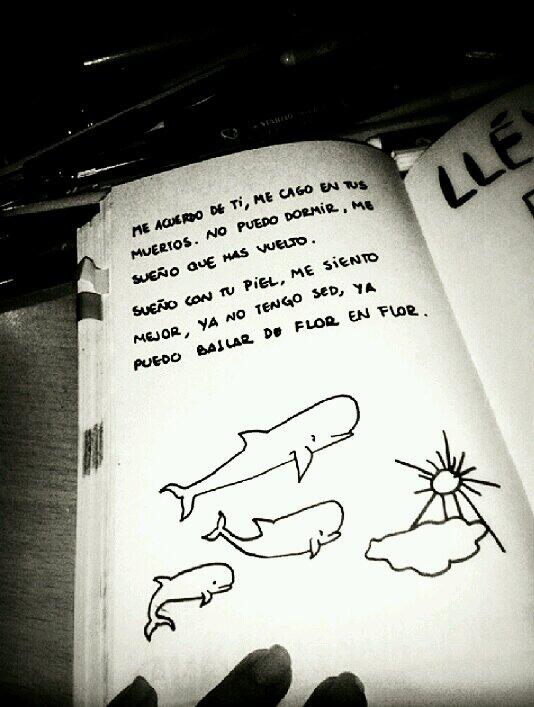 ME ACUERDO DE TÍ, ME CAGO EN TUS
MUERTOS. NO PUEDO DORMIR, ME
SUEÑO QUE HAS VUELTO.
SUEÑO CON TU PIEL, ME SIENTO
MEJOR, YA NO TENGO SED, YA
PUEDO BAILAR DE FLOR EN FLOR.